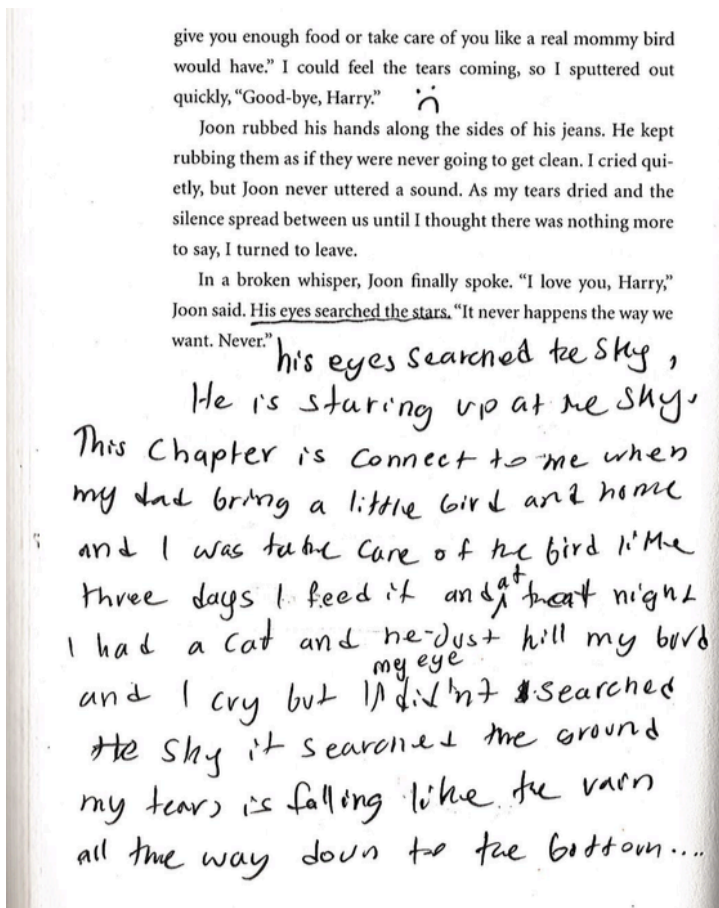 give you enough food or take care of you like a real mommy bird
would have.” I could feel the tears coming, so I sputtered out
quickly, “Good-bye, Harry.”
Joon rubbed his hands along the sides of his jeans. He kept
rubbing them as if they were never going to get clean. I cried qui-
etly, but Joon never uttered a sound. As my tears dried and the
silence spread between us until I thought there was nothing more
to say, I turned to leave.
In a broken whisper, Joon finally spoke. “I love you, Harry,”
Joon said. His eyes searched the stars. “It never happens the way we
want. Never.”
his eyes searched the sky,
He is staring up at the sky.
This Chapter is connect to me when
my dad bring a little bird and home
and I was take care of the bird like
three days I feed it and at that night
I had a cat and he just kill my bird
and I cry but my eye didn't searched
the sky it searched the ground
my tears is falling like the rain
all the way down to the bottom....